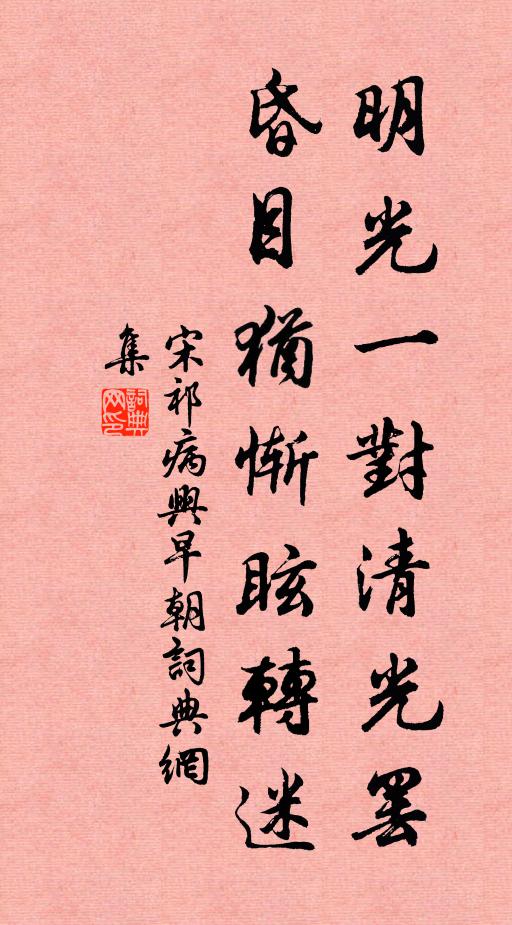 明光一對清光罷
昏目猶慚眩轉迷
宋祁病興早朝詞典網
集
詞典网印